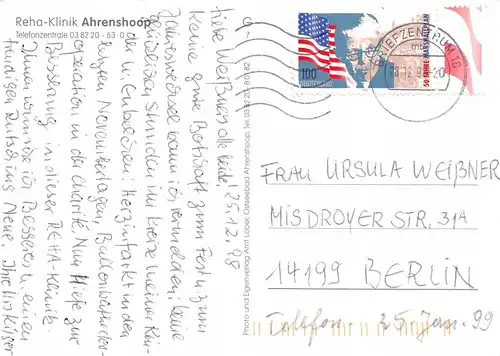 Reha-Klinik Ahrenshoop
Telefonzentrale 03 82 20 - 63 0
25.12.98
Liebe Weißners alle beide!
Keine gute Botschaft zum Fest u. zum
Jahreswechsel kann ich vermelden: keine
familiären Stunden im Kreise meiner Kin-
der u. Enkel, sondern Herzinfarkt in den
Novembertagen,
operation in der Charité. Nun Hiefe zur
in dieser REHA-Klinik.
Ihnen wünsche ich Besseres u. einen
freudigen Rutsch ins Neue. Ihre
Photo und Eigenverlag Arnt Löber, Ostseebad Ahrenshoop, Tel. 03 82 20 / 801 82
G 7
100
DEUTSCHLAND
50 JAHRE MARSHALLPLAN
BRIEFZENTRUM 18
mb
FRAU URSULA WEIßNER
MISDROYER STR. 31A
14199 BERLIN
Telefon. 25. Jan. 99